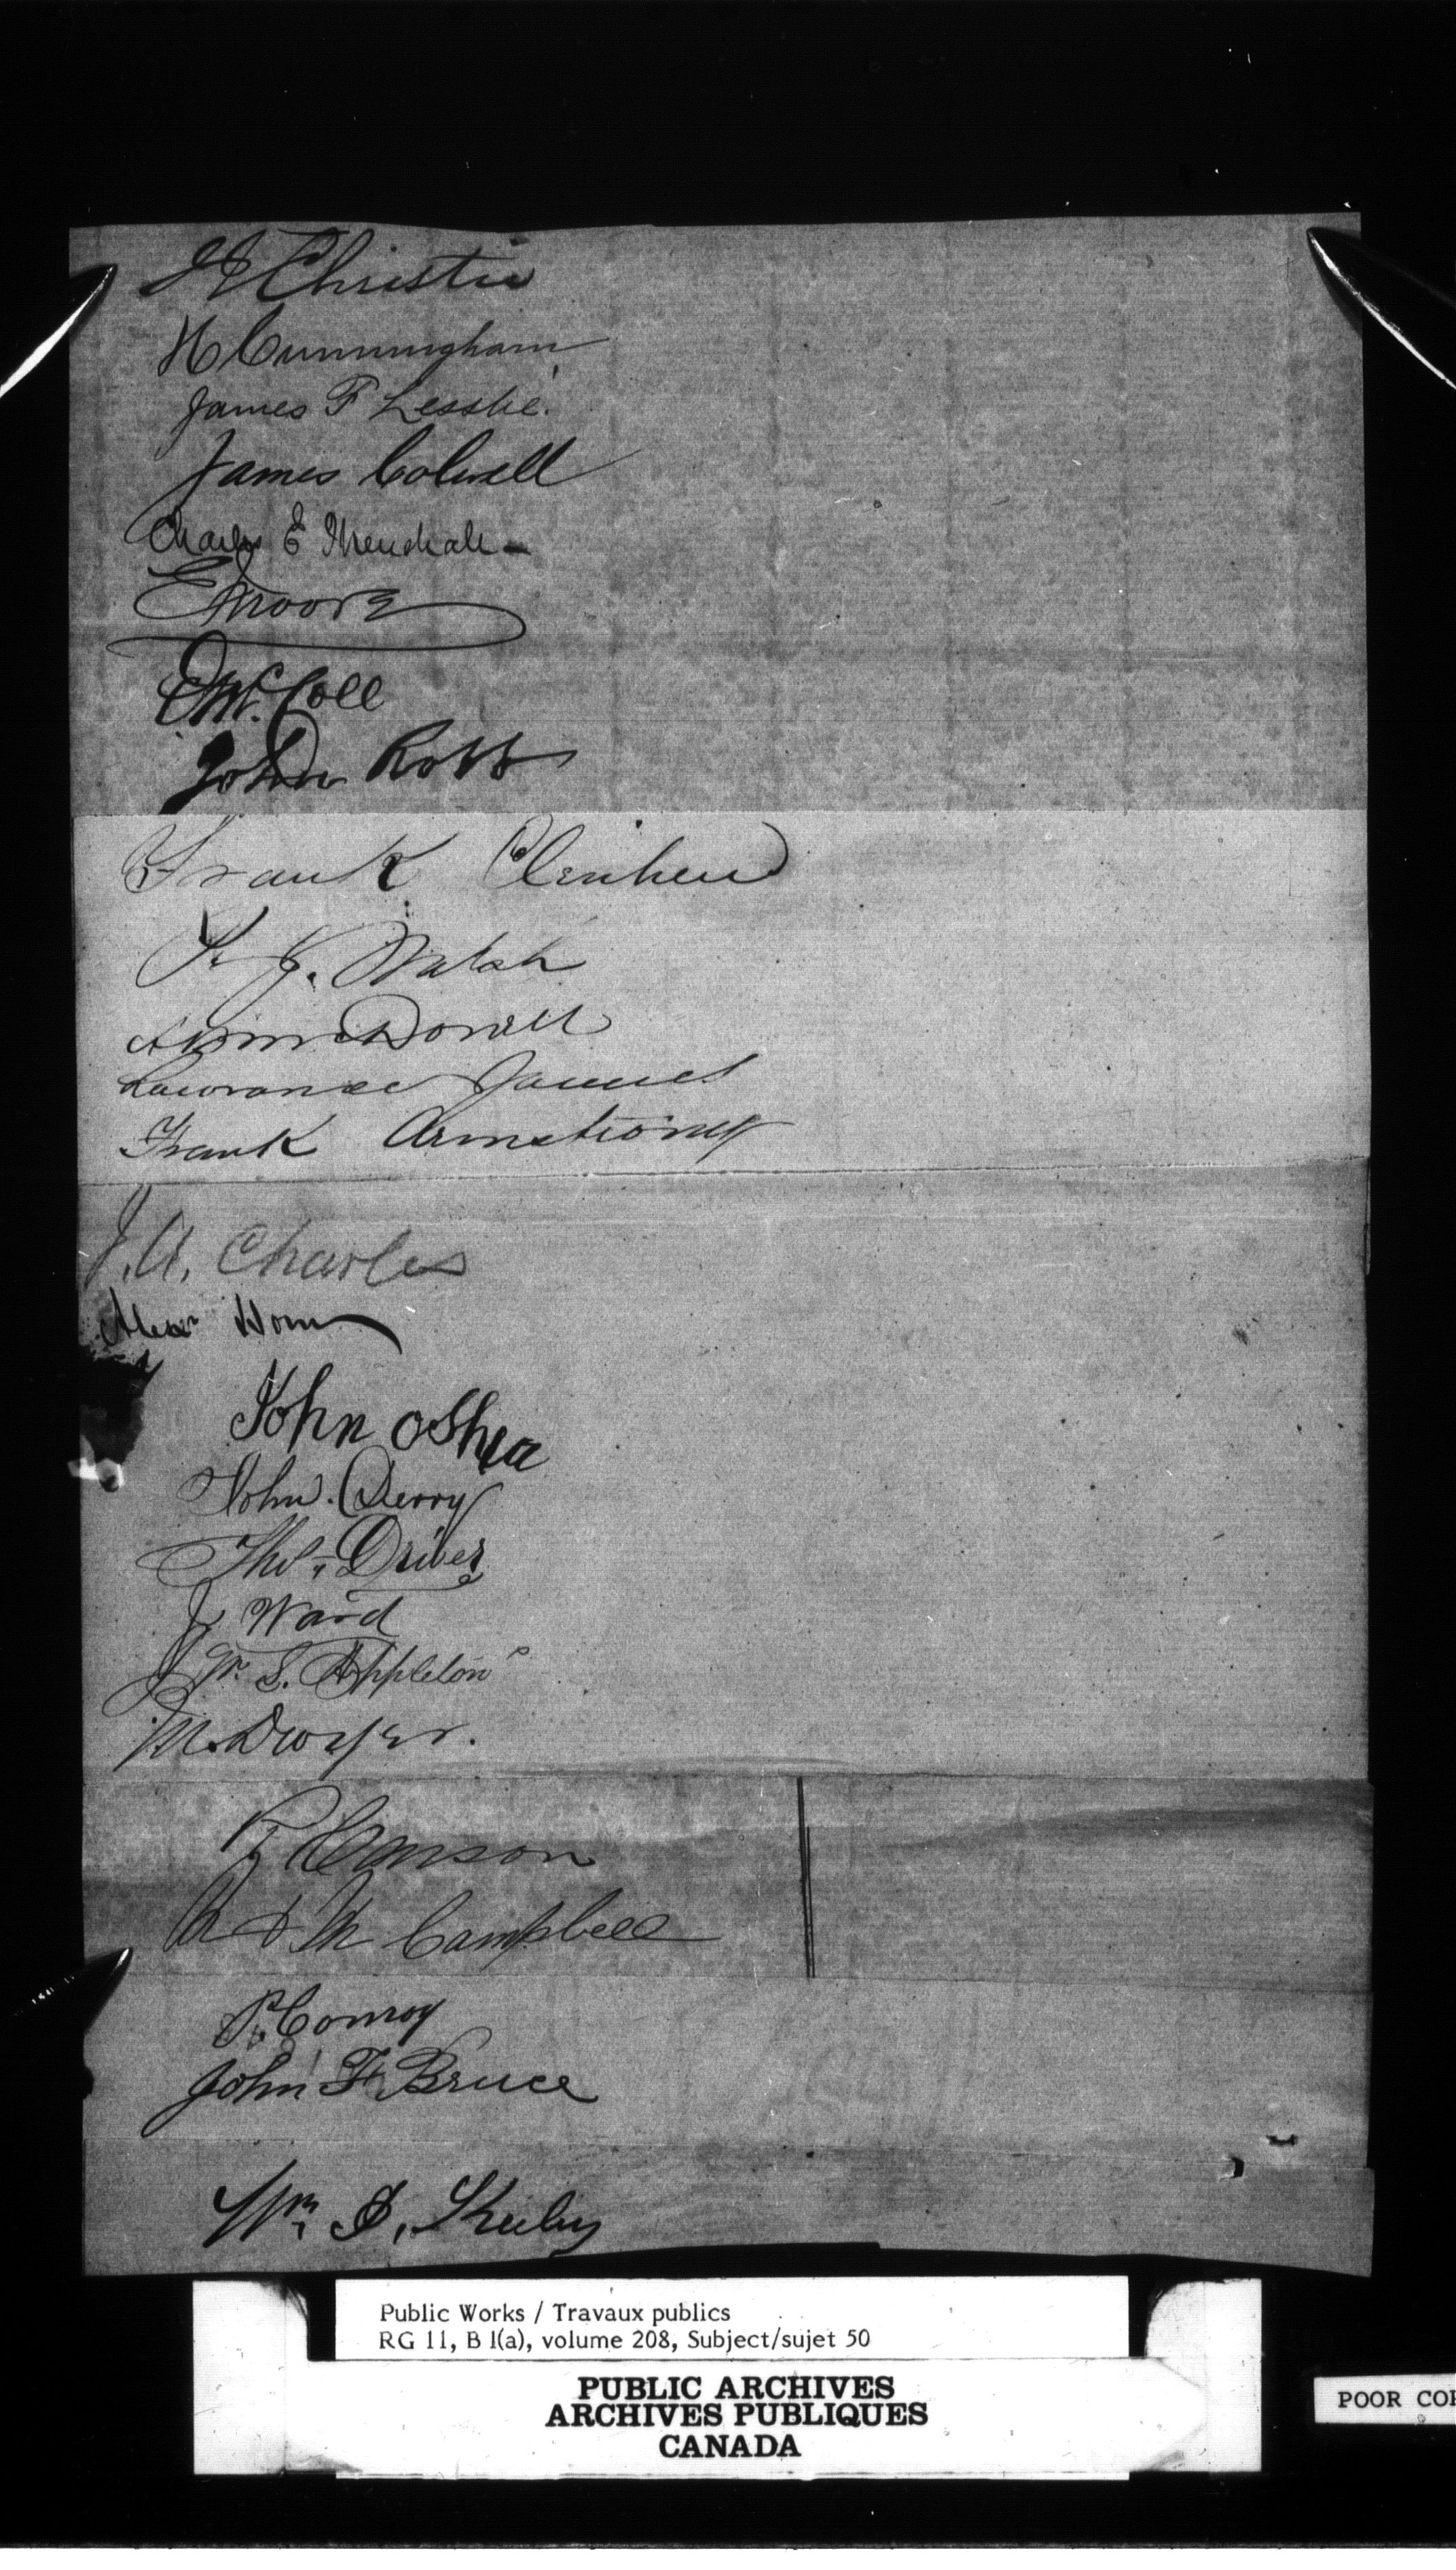 Christie
H Cunningham
James F Lesslie.
James Colwell
Charles E
E Moore
McColl
John Ross
Frank
J. Walsh
McDonell
Lawrance James
Frank Armstrong
J. A. Charles
Alexr Horn
John OShea
John. Derry
Thos. Driver
J Ward
Wm. S. Appleton
M. Dwyer.
Carson
Campbell
P. Conroy
John F Bruce
Wm.
Public Works / Travaux publics
RG 11, B 1(a), volume 208, Subject/sujet 50
PUBLIC ARCHIVES
ARCHIVES PUBLIQUES
CANADA
POOR